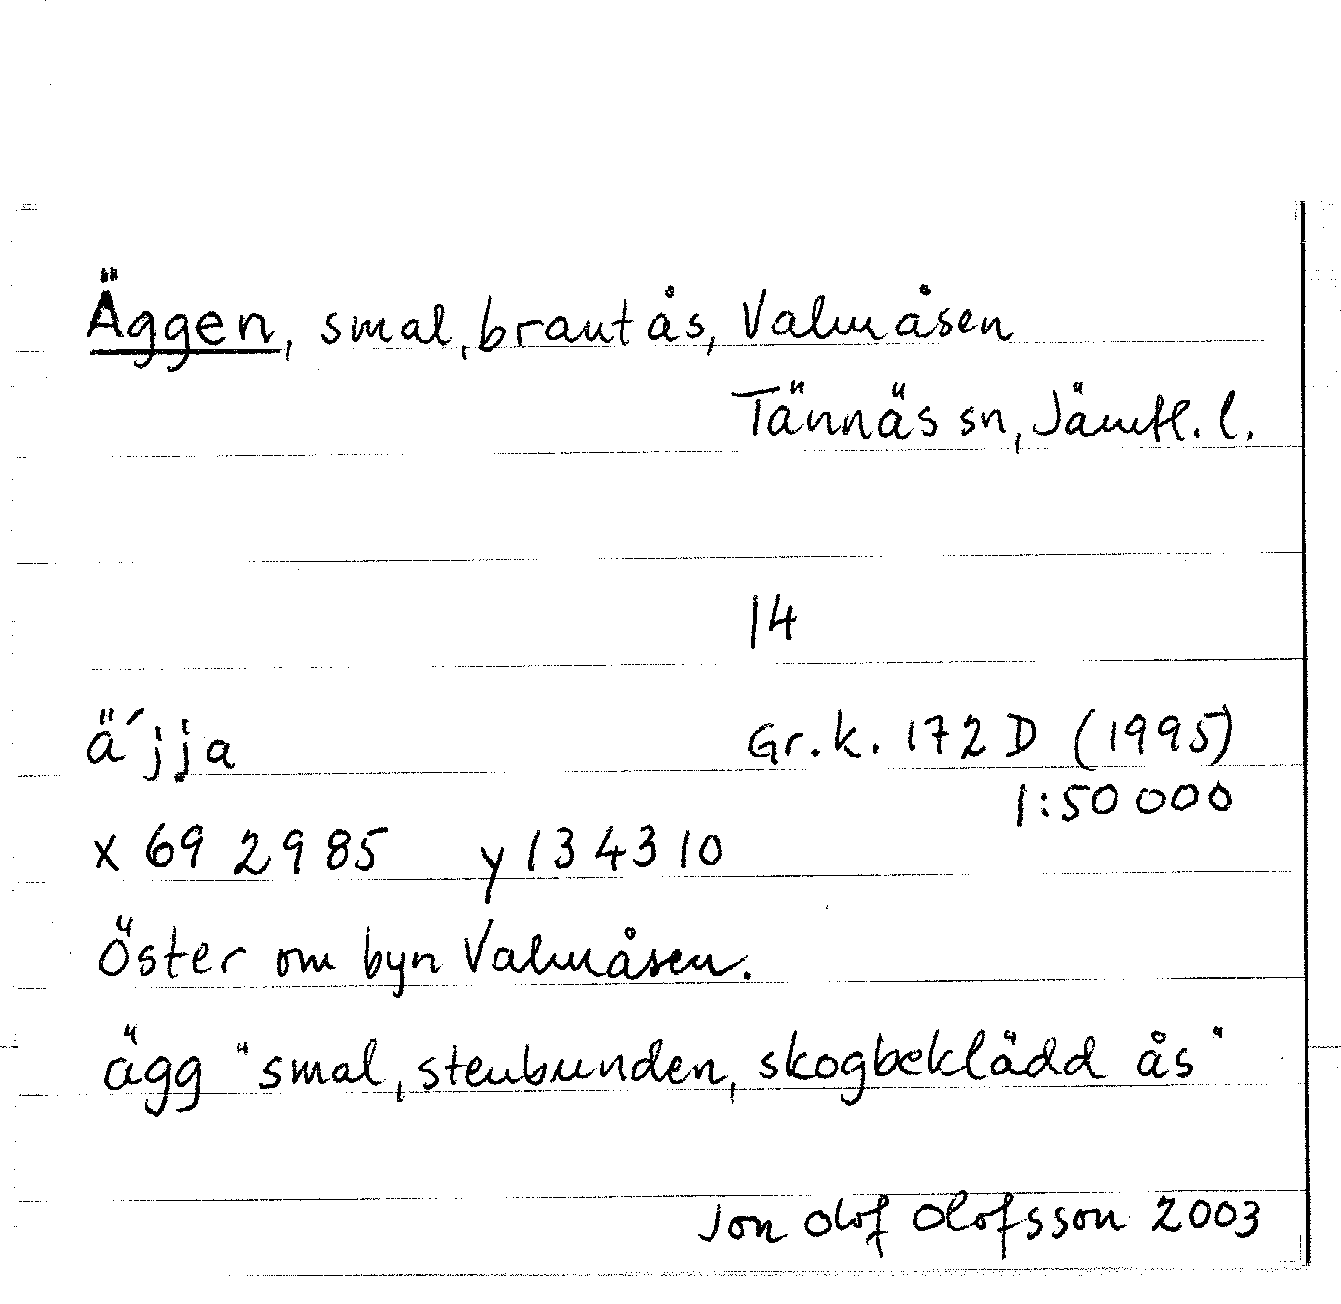 Äggen, smal, brant ås, Valmåsen
Tännäs sn, Jämtl. l.
14
ä´jja Gr.k. 172 D (1995)
1:50 000
x 69 2985 y 134310
Öster om byn Valmåsen.
ägg "smal, stenbunden, skogbeklädd ås"
Jon Olof Olofsson 2003